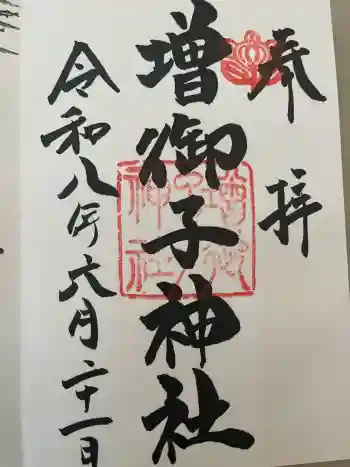 奉拝
増御子神社
令和八年六月二十一日
増御子神社